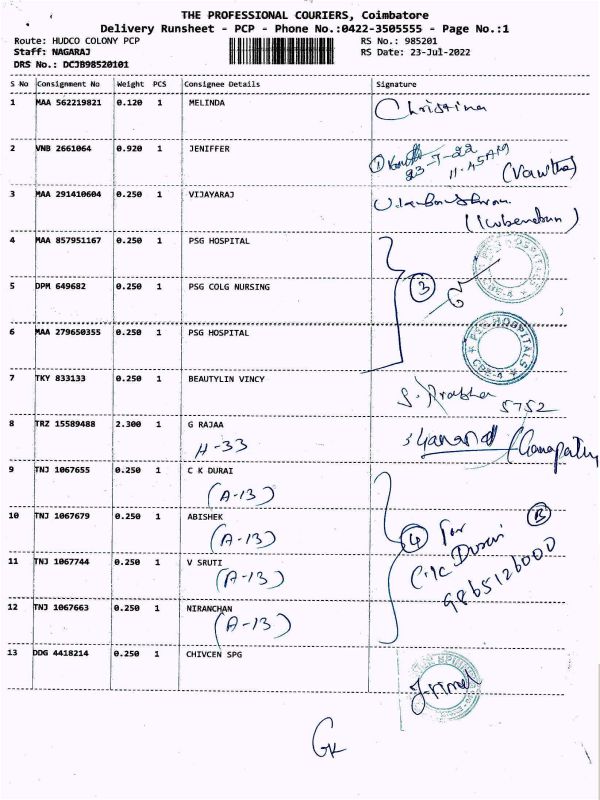 THE PROFESSIONAL COURIERS, Coimbatore
Delivery Runsheet - PCP - Phone No.:0422-3505555 - Page No.:1
Route: HUDCO COLONY PCP RS No.: 985201
Staff: NAGARAJ RS Date: 23-Jul-2022
DRS No.: DCJB98520101
S No Consignment No Weight PCS Consignee Details Signature
1 MAA 562219821 0.120 1 MELINDA Christina
2 VNB 2661064 0.920 1 JENIFFER
23-7-22
11.45AM
3 MAA 291410604 0.250 1 VIJAYARAJ
4 MAA 857951167 0.250 1 PSG HOSPITAL
PSG HOSPITALS
CBE-4
5 DPM 649682 0.250 1 PSG COLG NURSING
3
6 MAA 279650355 0.250 1 PSG HOSPITAL
PSG HOSPITALS
CBE-4
7 TKY 833133 0.250 1 BEAUTYLIN VINCY
S. Prabha
5752
8 TRZ 15589488 2.300 1 G RAJAA
H-33
9 TNJ 1067655 0.250 1 C K DURAI
(A-13)
10 TNJ 1067679 0.250 1 ABISHEK
(A-13)
4 for B
11 TNJ 1067744 0.250 1 V SRUTI
(A-13)
C.K Durai
9865126000
12 TNJ 1067663 0.250 1 NIRANCHAN
(A-13)
13 DDG 4418214 0.250 1 CHIVCEN SPG
GK